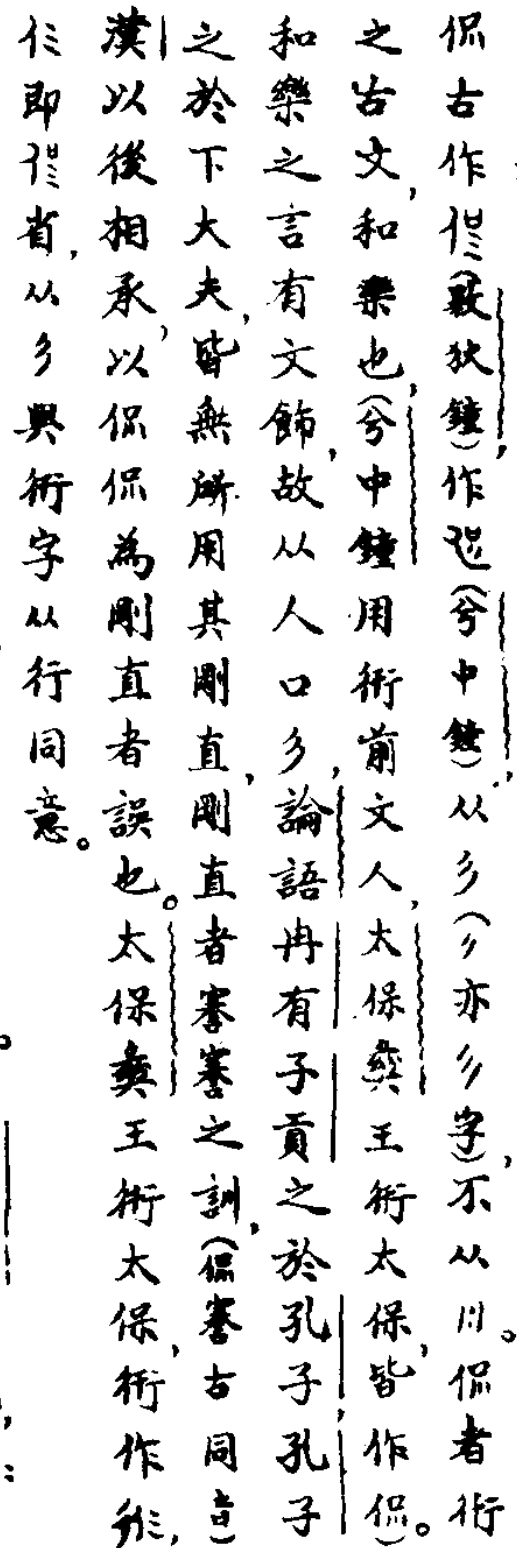 侃古作㑽(𣪘狄鐘),作(兮中鐘),从彡(彡亦彡字),不从川。侃者衎
之古文,和樂也,(兮中鐘用衎前文人,太保彝王衎太保,皆作侃)。
和樂之言有文飾,故从人口彡,論語冉有子貢之於孔子,孔子
之於下大夫,皆無所用其剛直,剛直者謇謇之訓,(侃謇古同音)
漢以後相承,以侃侃為剛直者誤也。太保彝王衎太保,衎作,
即省,从彡與衎字从行同意。